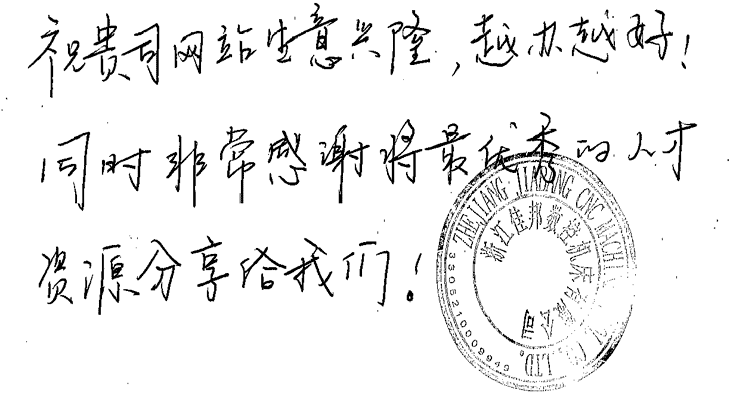 祝贵司网站生意兴隆,越办越好!
同时非常感谢将最优秀的人才
资源分享给我们!
ZHEJIANG JIABANG CNC MACHINE CO.,LTD.
浙江佳邦数控机床有限公司